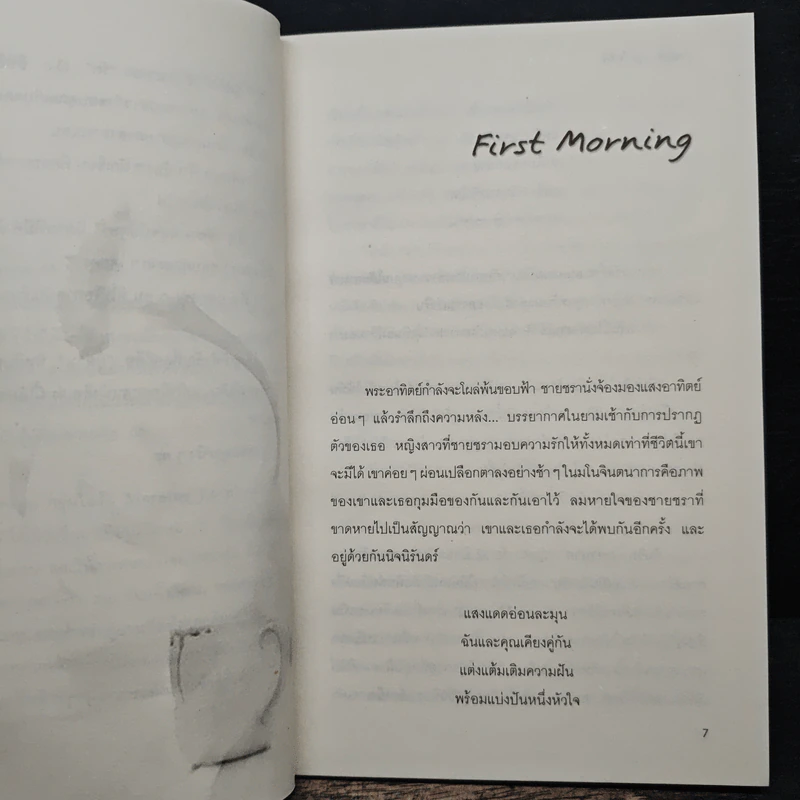 First Morning
พระอาทิตย์กำลังจะโผล่พ้นขอบฟ้า ชายชรานั่งจ้องมองแสงอาทิตย์
อ่อนๆ แล้วรำลึกถึงความหลัง... บรรยากาศในยามเช้ากับการปรากฏ
ตัวของเธอ หญิงสาวที่ชายชรามอบความรักให้ทั้งหมดเท่าที่ชีวิตนี้เขา
จะมีได้ เขาค่อยๆ ผ่อนเปลือกตาลงอย่างช้าๆ ในมโนจินตนาการคือภาพ
ของเขาและเธอกุมมือของกันและกันเอาไว้ ลมหายใจของชายชราที่
ขาดหายไปเป็นสัญญาณว่า เขาและเธอกำลังจะได้พบกันอีกครั้ง และ
อยู่ด้วยกันนิจนิรันดร์
แสงแดดอ่อนละมุน
ฉันและคุณเคียงคู่กัน
แต่งแต้มเติมความฝัน
พร้อมแบ่งปันหนึ่งหัวใจ
7